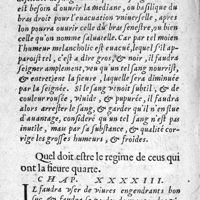 est besoin d'ouurir la mediane, ou basilique du
bras droit pour l'euacuation vniuerselle, apres
lon pourra ouurir celle du bras senestre, ou bien
celle qu'on nomme saluatelle. Car par tel moyen
l'humeur melancholic est euacué, lequel s'il ap-
paroist tel, c'est a dire gros, & noir, il faudra
seigner amplement, veu qu'un tel sang nourrist,
& entretient la fieure, laquelle sera diminuée
par la seignée. Si le sang venoit subtil, & de
couleur rousée, viuide, & pupurée, il faudra
alors arrester le sang, & garder qu'il n'en flue
d'auantage, considéré qu'un tel sang n'est pas
inutile, mais par sa substance, & qualité cor-
rige les grosses humeurs, & froides.
Quel doit estre le regime de ceus qui
ont la fieure quarte.
CHAP. XXXXIII.
IL faudra vser de viures engendrants bon